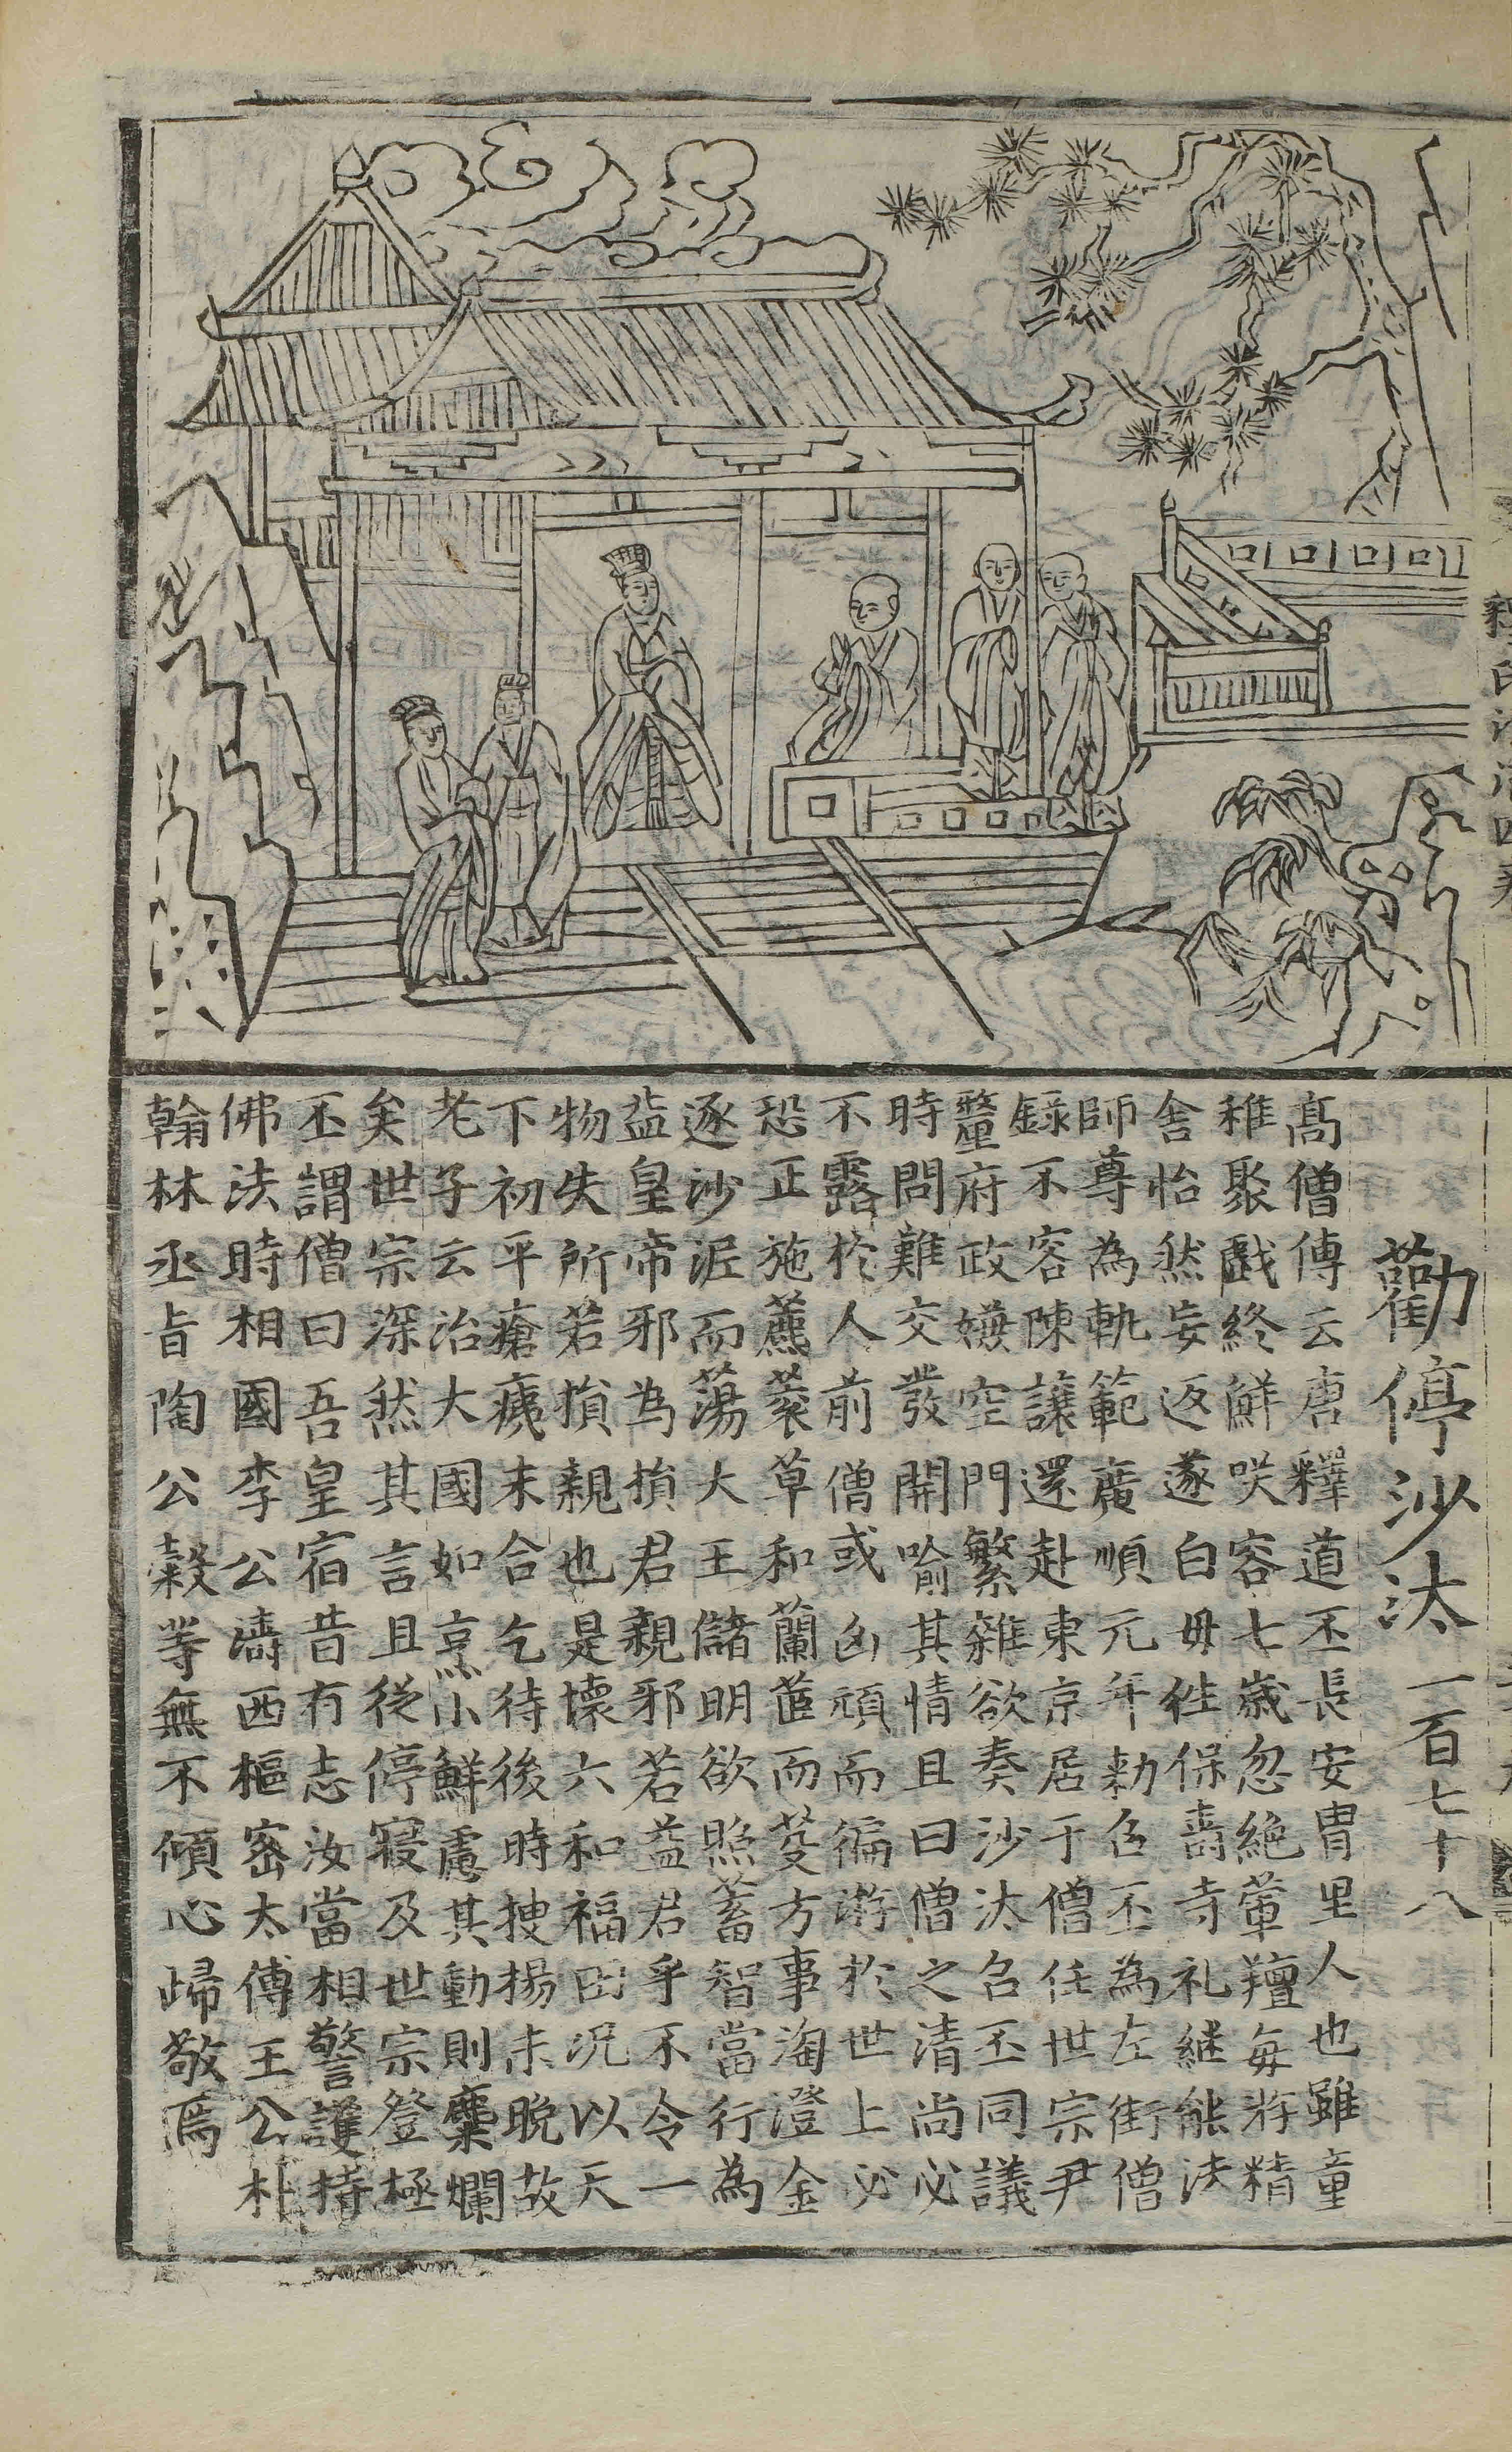 勸停沙汰一百七十八
髙僧傳云唐釋道丕長安胄里人也雖童
稚聚戲終鮮咲容七歲忽絶葷羶每將精
舍怡然妄返遂白毋徃保壽寺礼継能法
師尊為軌範廣順元年勑召丕為左街僧
録不容陳讓還赴東京居于僧任世宗尹
釐府政嫌空門繁雜欲奏沙汰召丕同議
時問難交發開喻其情且曰僧之清尚必
不露於人前僧或凶頑而徧游於世上必
恐正施薦蓘草和蘭茝而芟方事淘澄金
逐沙泥而蕩大王儲明欲照蓄智當行為
益皇帝邪為損君親邪若益君乎不令一
物失所若損親也是壞六和福田况以天
下初平瘡痍未合乞待後時搜揚未晩故
老子云治大國如烹小鮮慮其動則麋爛
矣世宗深然其言且從停寢及世宗登極
丕謂僧曰吾皇宿昔有志汝當相警護持
佛法時相國李公濤西樞宻太傅王公朴
翰林丞旨陶公穀等無不傾心歸敬焉